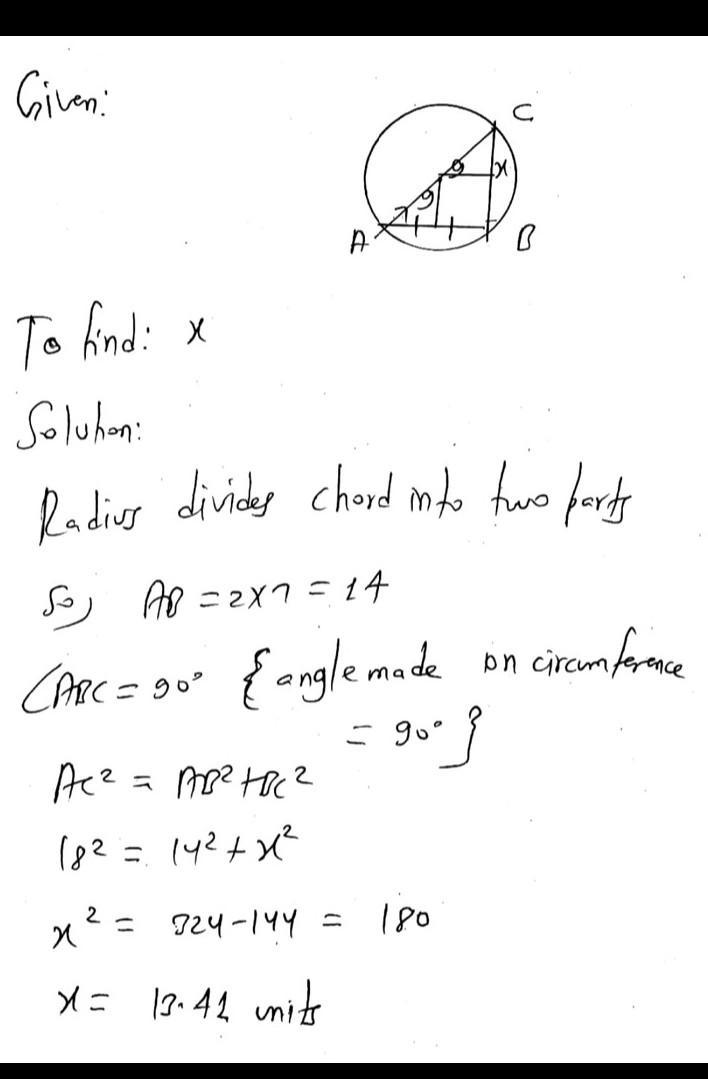 Given:
C
9
x
9
7
A
B
To find: x
Solution:
Radius divides chord into two parts
So, AB = 2x7 = 14
∠ABC = 90° { angle made on circumference
= 90° }
AC² = AB² + BC²
18² = 14² + x²
x² = 324-144 = 180
x = 13.42 units